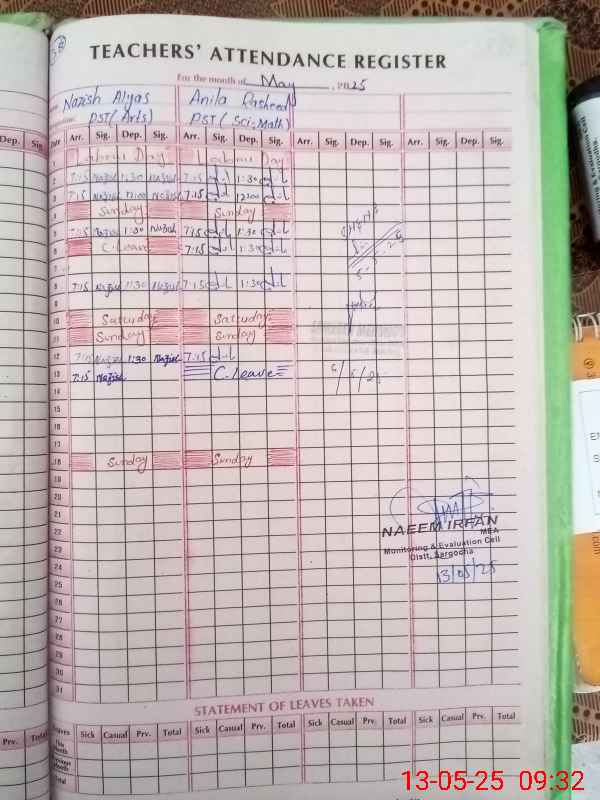 TEACHERS' ATTENDANCE REGISTER
For the month of May, 2025
Nazish Alyas Anila Rasheed
PST (Arts) PST (Sci, Math)
Date Arr. Sig. Dep. Sig. Arr. Sig. Dep. Sig. Arr. Sig. Dep. Sig. Arr. Sig. Dep. Sig.
1 Labour Day Labour Day
2 7:15 Nazish 1:30 Nazish 7:15 1:30
3 7:15 Nazish 12:00 Nazish 7:15 12:00
4 Sunday Sunday
5 7:15 Nazish 1:30 Nazish 7:15 1:30
6 C.Leave 7:15 1:30
7
8 7:15 Nazish 1:30 Nazish 7:15 1:30
9
10 Saturday Saturday
11 Sunday Sunday
12 7:15 Nazish 1:30 Nazish 7:15
13 7:15 Nazish C.Leave
14
15
16
17
18 Sunday Sunday
19
20
21
22
23
24
25
26
27
28
29
30
31
NAEEM IRFAN
MEA
Monitoring & Evaluation Cell
Distt. Sargodha
13/05/25
STATEMENT OF LEAVES TAKEN
Leaves Sick Casual Prv. Total Sick Casual Prv. Total Sick Casual Prv. Total Sick Casual Prv. Total
This Month
Total
Dep. Sig.
Prv. Total
13-05-25 09:32